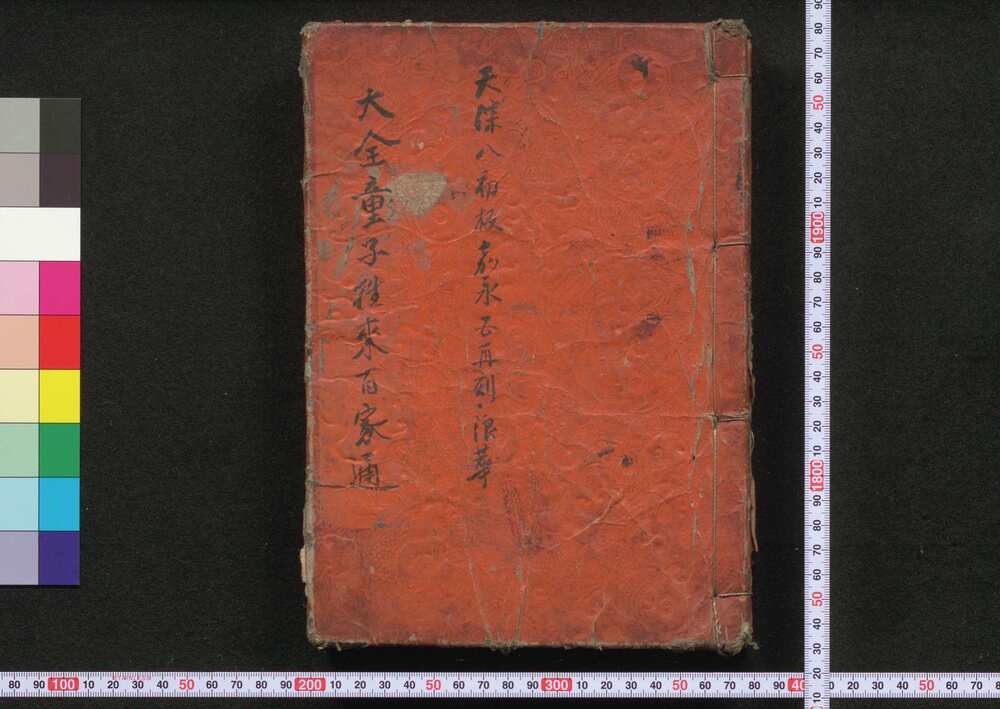 天保八初板嘉永五再刻・浪華
大全童子往来百家通